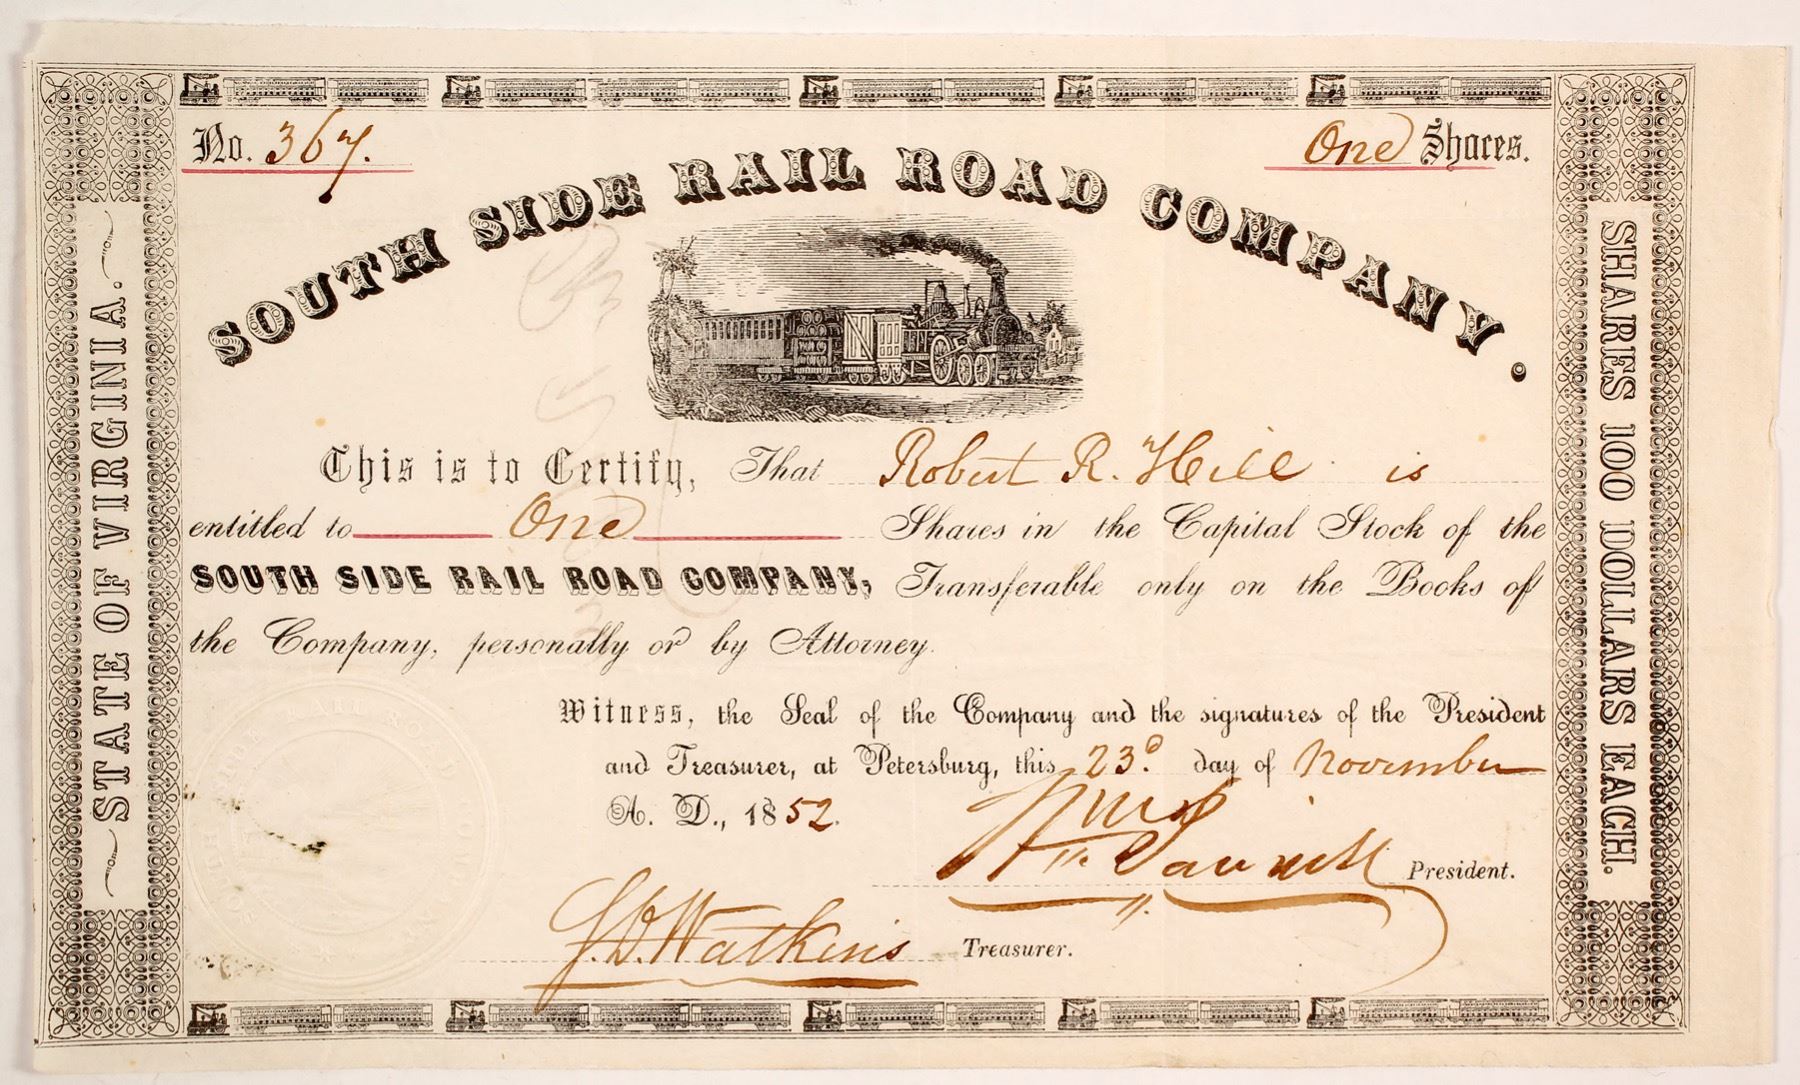 No. 367.
One Shares.
SOUTH SIDE RAIL ROAD COMPANY.
STATE OF VIRGINIA.
SHARES 100 DOLLARS EACH.
This is to Certify, That Robert R. Hill is
entitled to One Shares in the Capital Stock of the
SOUTH SIDE RAIL ROAD COMPANY, Transferable only on the Books of
the Company, personally or by Attorney.
Witness, the Seal of the Company and the signatures of the President
and Treasurer, at Petersburg, this 23d. day of November
A. D., 1852.
President.
J. D. Watkins Treasurer.